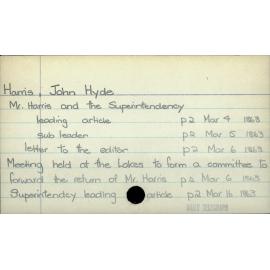 Harris, John Hyde
Mr. Harris and the Superintendency
leading article p2 Mar 4 1863
sub leader p2 Mar 5 1863
letter to the editor p2 Mar 6 1863
Meeting held at the Lakes to form a committee to
forward the return of Mr. Harris p2 Mar 6 1863
Superintendcy leading article p2 Mar 16 1863